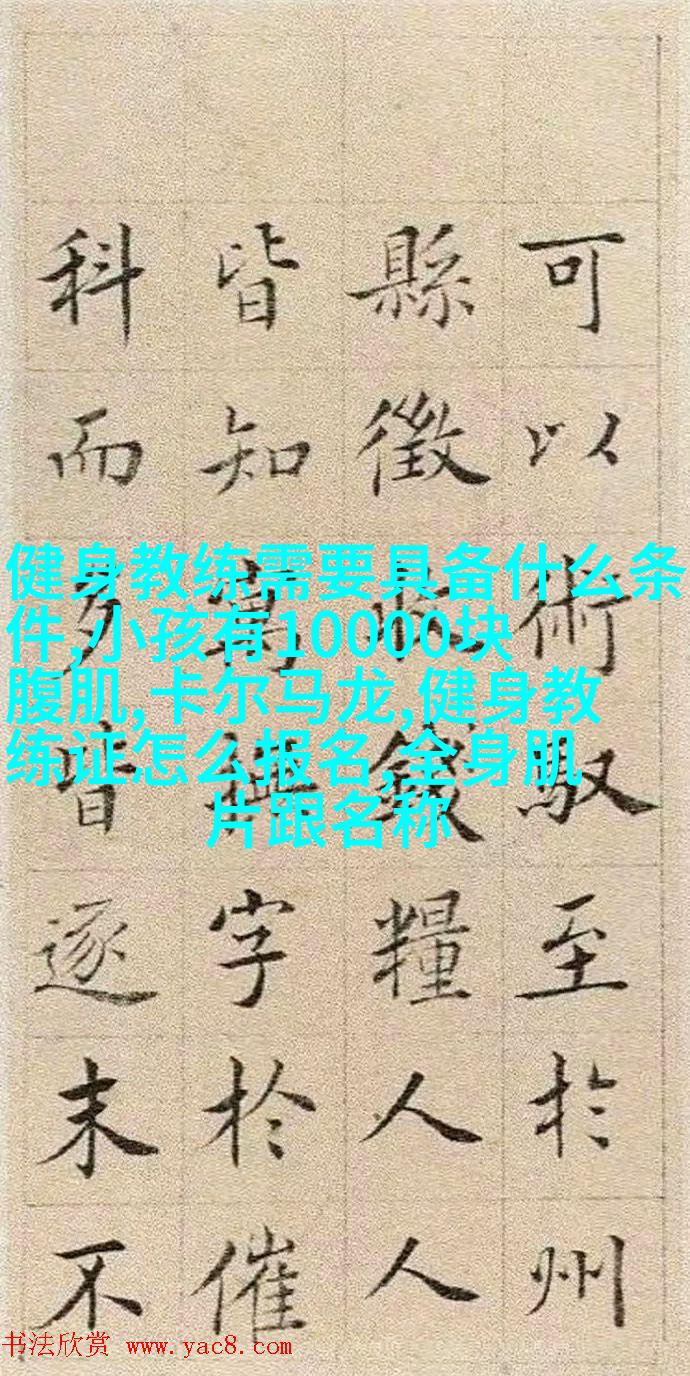 可以術馭至於州
縣徵錢糧人人
皆知字於催
科而逐末不
健身教练需要具备什么条
件,小孩有10000块
腹肌,卡尔马龙,健身教
练证怎么报名,全身肌
片跟名称
书法欣赏 www.yac8.com